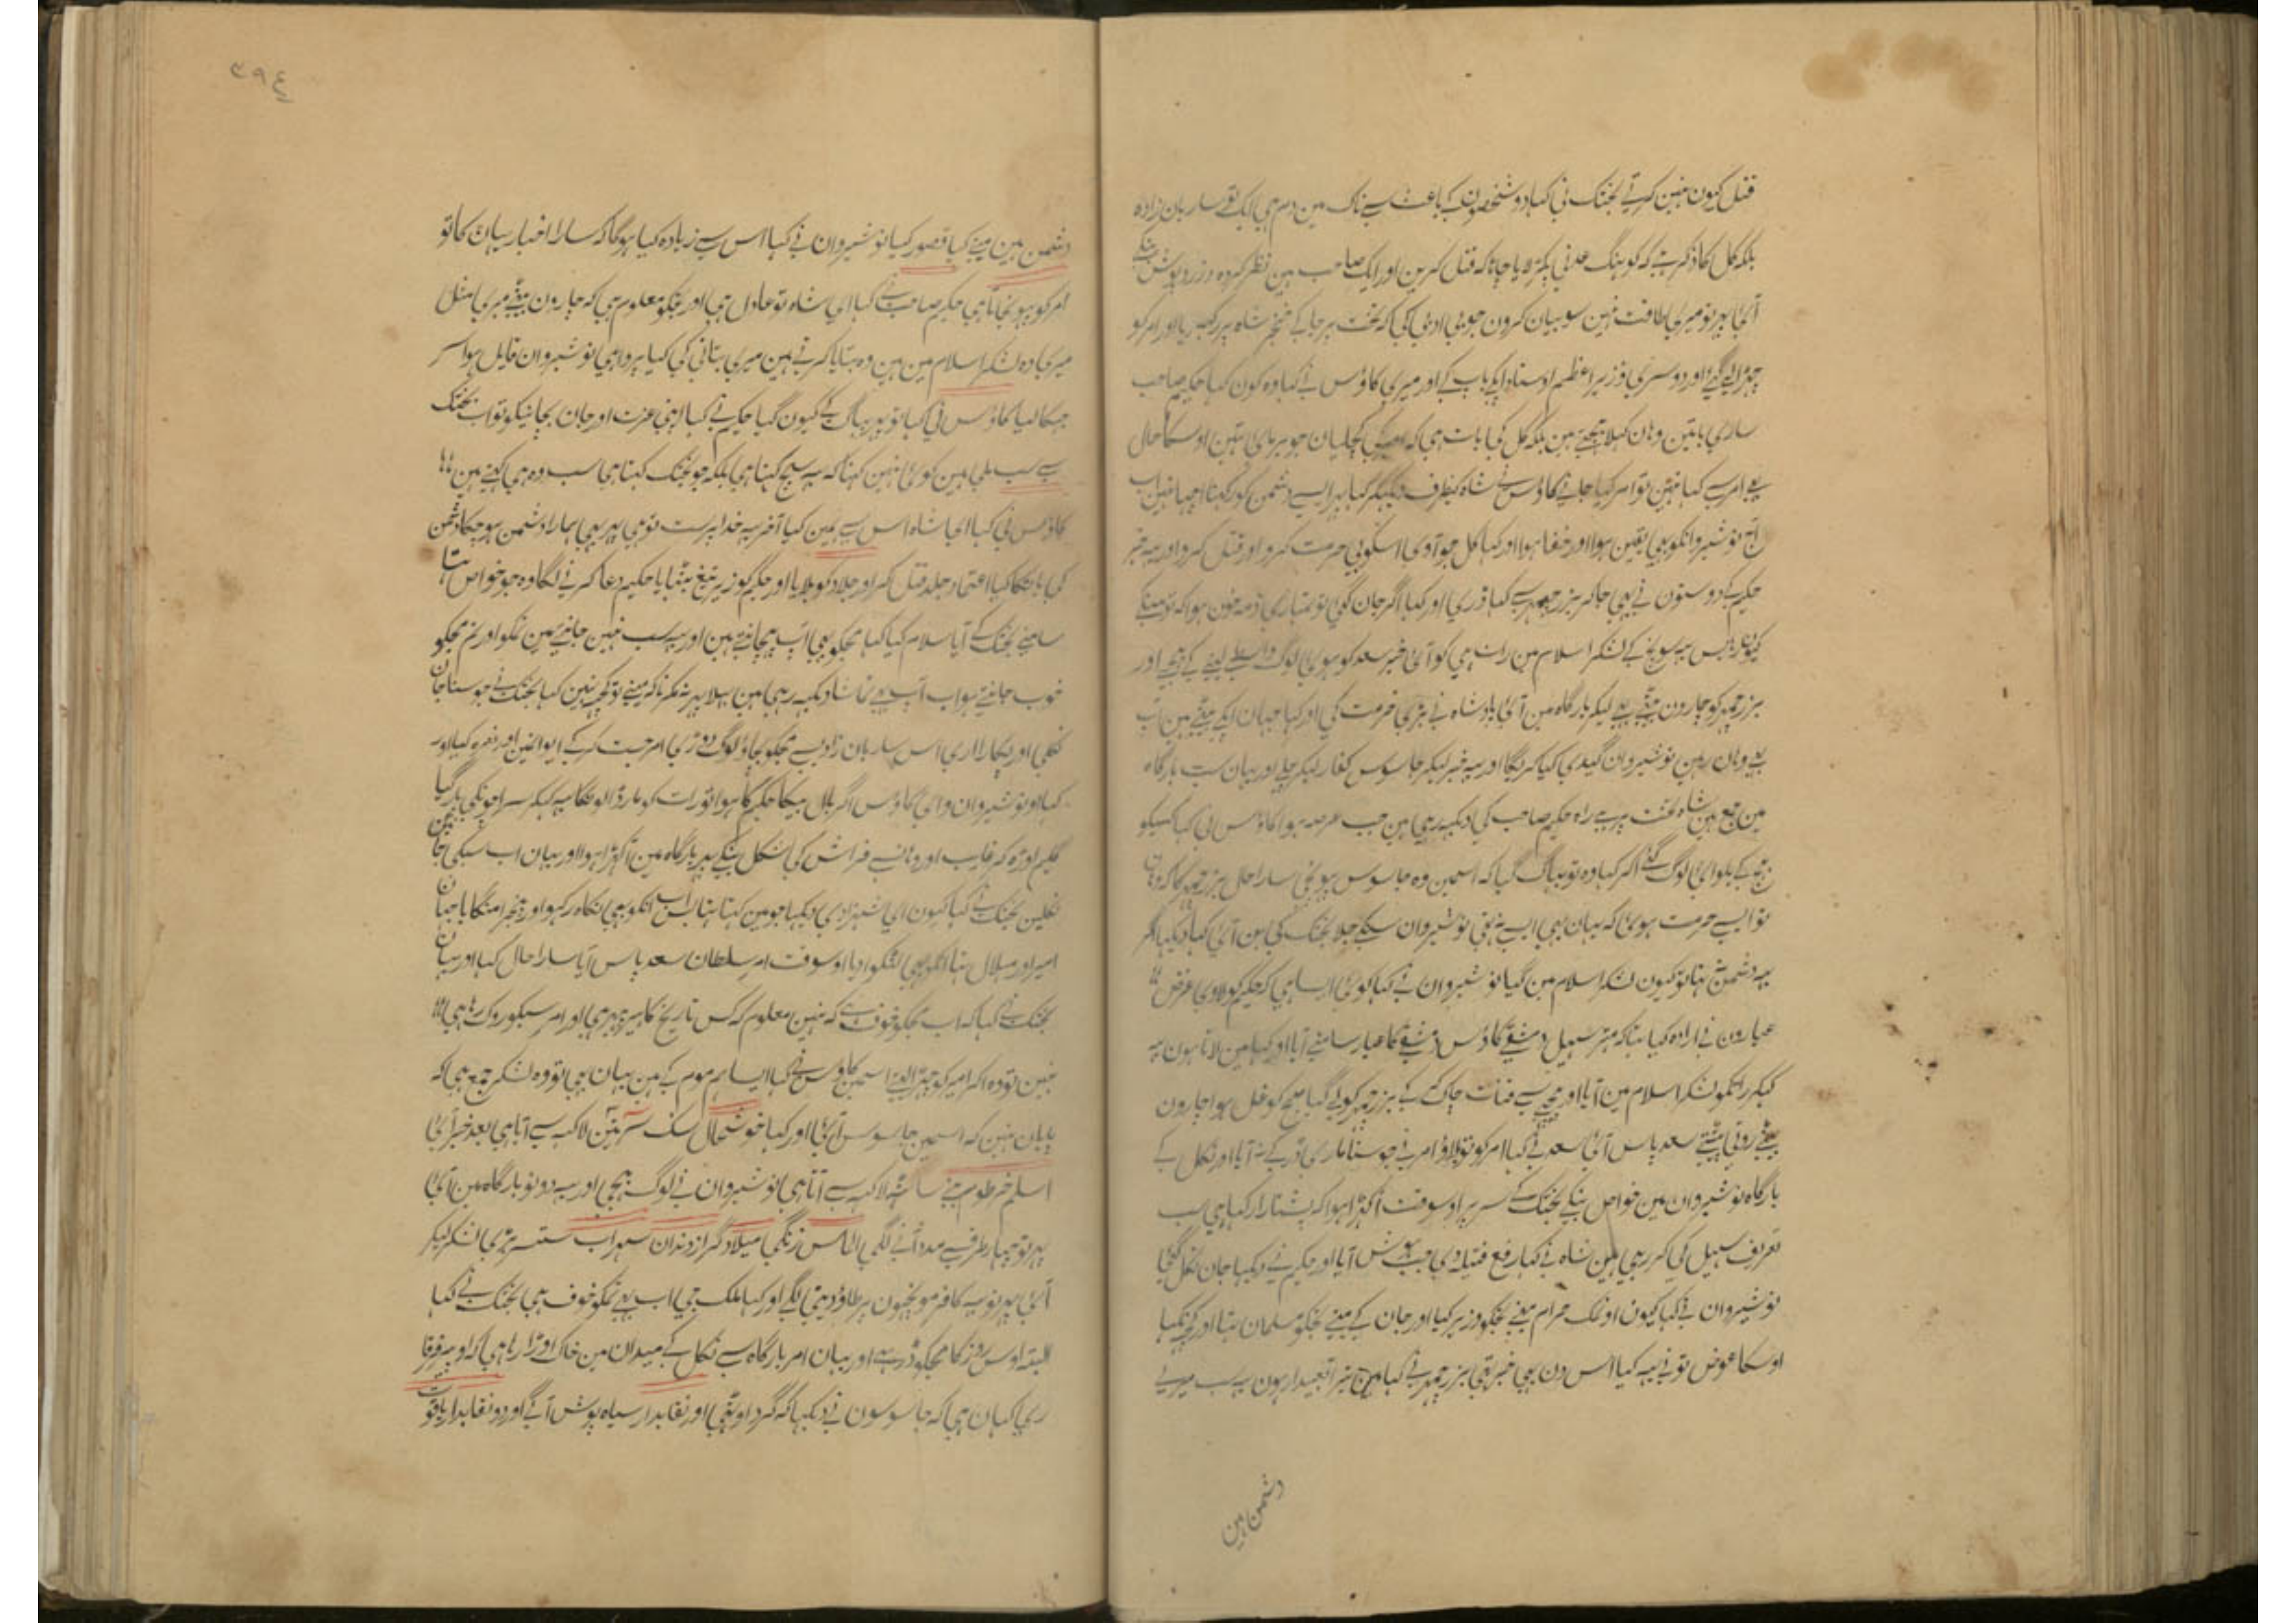 قتل کیون نہین کرتے بختک نی کہا دو شخصون کے باعث سے ناک مین دم ہی ایک تو ساربان زادہ
بلکہ کل کا ذکر ہے کہ کو ہنگ عدنی پکڑ لایا چاہا کہ قتل کرین اور ایک صاحب ہین نظر کردہ زرد پوش بنکے
آئی پہر تو میری طاقت نہین سو بیان کرون جو بی ادبی کی کہ تخت پر جا کے خنجر شاہ پر رکہدیا اور امر کو
چہڑا لے گئے اور دوسری وزیر اعظم اوستاد ایکے باپ کے اور میری کاؤس نے کہا وہ کون کہا حکیم صاحب
ساری باتین وہان کہلا بہیجتے ہین بلکہ کل کی بات ہی کہ اوسکا حال
یہ امر سے کہا نہین تو امر کیا جانے کاؤس نے شاہ کیطرف دیکہکر کہا پہر ایسے دشمن کو رکہنا اچہا نہین اب
آج نوشیروانکو بہی یقین ہوا اور خفا ہوا اور کہا کل جو آوی اسکو بی حرمت کرو اور قتل کرو اور یہ خبر
حکیم کے دوستون نے بہی جا کر بزرجمہر سے کہا ڈری اور کہا اگر جان گئی تو تمہاری ذمہ خون ہوا کہ تو مینکے
یہ سوچ کے لشکر اسلام مین رات ہی کو آئی خبر سعد کو ہوی لوگ واسطے لینے کے بہیجے اور
بزرجمہر کو چارون بیٹے بہی لیکر بارگاہ مین آئی بادشاہ نے بڑی حرمت کی اور کہا جہان ایکے بیٹے ہین آپ
بہی وہان رہین نوشیروان گیدی کیا کریگا اور یہ خبر لیکر جاسوس کفار لیکر چلے اور یہان سب بارگاہ
مین جمع ہین شاہ تخت پر ہے راہ حکیم صاحب کی دیکہہ رہی ہین جب عرصہ ہوا کاؤس نی کہا کسیکو
بہیج کے بلوای لوگ گئے آکر کہا وہ تو بہاگ گیا کہ اسمین وہ جاسوس پہونچی سارا حال بزرجمہر کا کہ وہان
تو ایسے حرمت ہوی کہ یہان بہی ایسے نہ تہی نوشیروان سنکے جلا بختک کی بن آئی کہا دیکہا اگر
یہ دشمن نہتا تو کیون لشکر اسلام مین گیا نوشیروان نے کہا کوی ایسا ہی کہ حکیم کو لاوی غرض
عیارون نے ارادہ کیا تہا کہ مہتر سہیل دمشقی کاؤس دمشقی کا عیار سامنے آیا اور کہا مین لاتا ہون یہ
کہکر راتکو لشکر اسلام مین آیا اور پیچہے سے قنات چاک کر کے بزرجمہر کو لے گیا صبح کو غل ہوا چارون
بیٹے روتی پیٹتے سعد پاس آئی سعد نے کہا امر کو تو بلاؤ امر نے جو سنا ماری ڈر کے نہ آیا اور نکل کے
بارگاہ نوشیروان مین خواص بنکے بختک کے سر پر اوسوقت آ کہڑا ہوا کہ پشتارا رکہا ہی سب
تعریف سہیل کی کر رہی ہین شاہ نے کہا رفع فتیلہ دی جب ہوش آیا اور حکیم نے دیکہا جان نکل گئی
نوشیروان نے کہا کیون او نمک حرام مینے تجکو وزیر کیا اور جان کے مینے تجکو مسلمان تہا اور کچہہ نکہا
اوسکا عوض تو نے یہ کیا اس دن بہی خبر تہی بزرجمہر نے کہا مین تیرا تعبیدار ہون یہ سب میری
دشمن ہین
٣٩٤
دشمن ہین مینے کیا قصور کیا نوشیروان نے کہا اس سے زیادہ کیا ہوگا کہ سارا اخبار یہان کا تو
امر کو پہونچاتا ہی حکیم صاحب نے کہا ای شاہ تو عادل ہی اور تجکو معلوم ہی کہ چارون بیٹے میری مثل
میری وہ لشکر اسلام مین ہین وہ بتایا کرتے ہین میری بتانی کی کیا پروا ہی نوشیروان قایل ہوا سر
جہکا لیا کاؤس نی کہا تو پہر بہاگ کے کیون گیا حکیم نے کہا اپنی عزت اور جان بچانیکو تو اب بختک
سے سب ملی ہین کوئی نہین کہتا کہ یہ سچ کہتا ہی بلکہ جو بختک کہتا ہی سب وہ ہی کہتے ہین
کاؤس نی کہا ای شاہ اس سے ہمین کیا آخر یہ خدا پرست تو ہی پہر بہی ہمارا دشمن ہو چکا دشمن
کی بات کا کیا اعتماد جلد قتل کر اور جلاد کو بلایا اور حکیم کو زیر تیغ بٹہایا حکیم دعا کرنے لگا وہ جو خواص بنا تہا
سامنے بختک کے آیا سلام کیا کہا مجکو بہی آپ پہچانتے ہین اور یہ سب نہین جانتے ہین تمکو اور تم مجکو
خوب جانتے ہو اب آپ بہی تماشا دیکہہ رہی ہین بہلا پہر نہ مکرنا کہ مینے تو کچہہ نہین کہا بختک نے جو سنا جان
نکلی اور پکارا اری اس ساربان زادے سے مجکو بچاؤ لوگ دوڑی امر جست کر کے ایوانمین اور نعرہ کیا اور
کہا او نوشیروان وای کاؤس اگر بال بیکا حکیم کا ہوا تو رات کو مار ڈالونگا یہ کہکر سراچونکی پار گیا
گلیم اوڑہ کر غایب اور وہانسے فراش کی شکل بنکے پہر بارگاہ مین آ کہڑا ہوا اور یہان اب سبکی جانین
نکلین بختک نے کہا کیون ای شہزادی دیکہا جو مین کہتا تہا بس اب انکو بہی نگاہ رکہو اور پنجرا منگایا جہان
امیر اور میلال تہا انکو بہی لٹکوا دیا اوسوقت امر سلطان سعد پاس آیا سارا حال کہا اور یہان
بختک نے کہا کہ اب مجکو خوف ہے کہ نہین معلوم کہ کس تاریخ کا پہر پہری اور امر سبکو روک رہا ہی
نہین تو وہ آ کہ امیر کو چہڑا لیتے اسمین کاؤس نے کہا ایسا ہم موم کے ہین یہان بہی تو وہ لشکر جمع ہی کہ
پایان نہین کہ اسمین جاسوس آئی اور کہا خوشحال سگ سر تین لاکہہ سے آتا ہی بعد خبر آئی
اسلم خرطوم بینی ساٹہہ لاکہہ سے آتا ہی نوشیروان نے لوگ بہیجی اور یہ دونو بارگاہ مین آئی
پہر تو چہار طرف سے مدد آنے لگی الماس زنگی میلاد گراز دندان سہراب شستری لشکر لیکر
آئی پہر تو یہ کافر موچہون پر تاؤ دینی لگے اور کہا ملک جی اب بہی تمکو خوف ہی بختک نے کہا
البتہ اوس روز کا مجکو ڈر ہے اور یہان امر بارگاہ سے نکل کے میدان مین خاک اوڑا رہا ہی کہ
ری کہان ہی کہ جاسوسون نے دیکہا کہ گرد اوٹہی اور نقابدار سیاہ پوش آئے اور دو نقابدار یاقوت